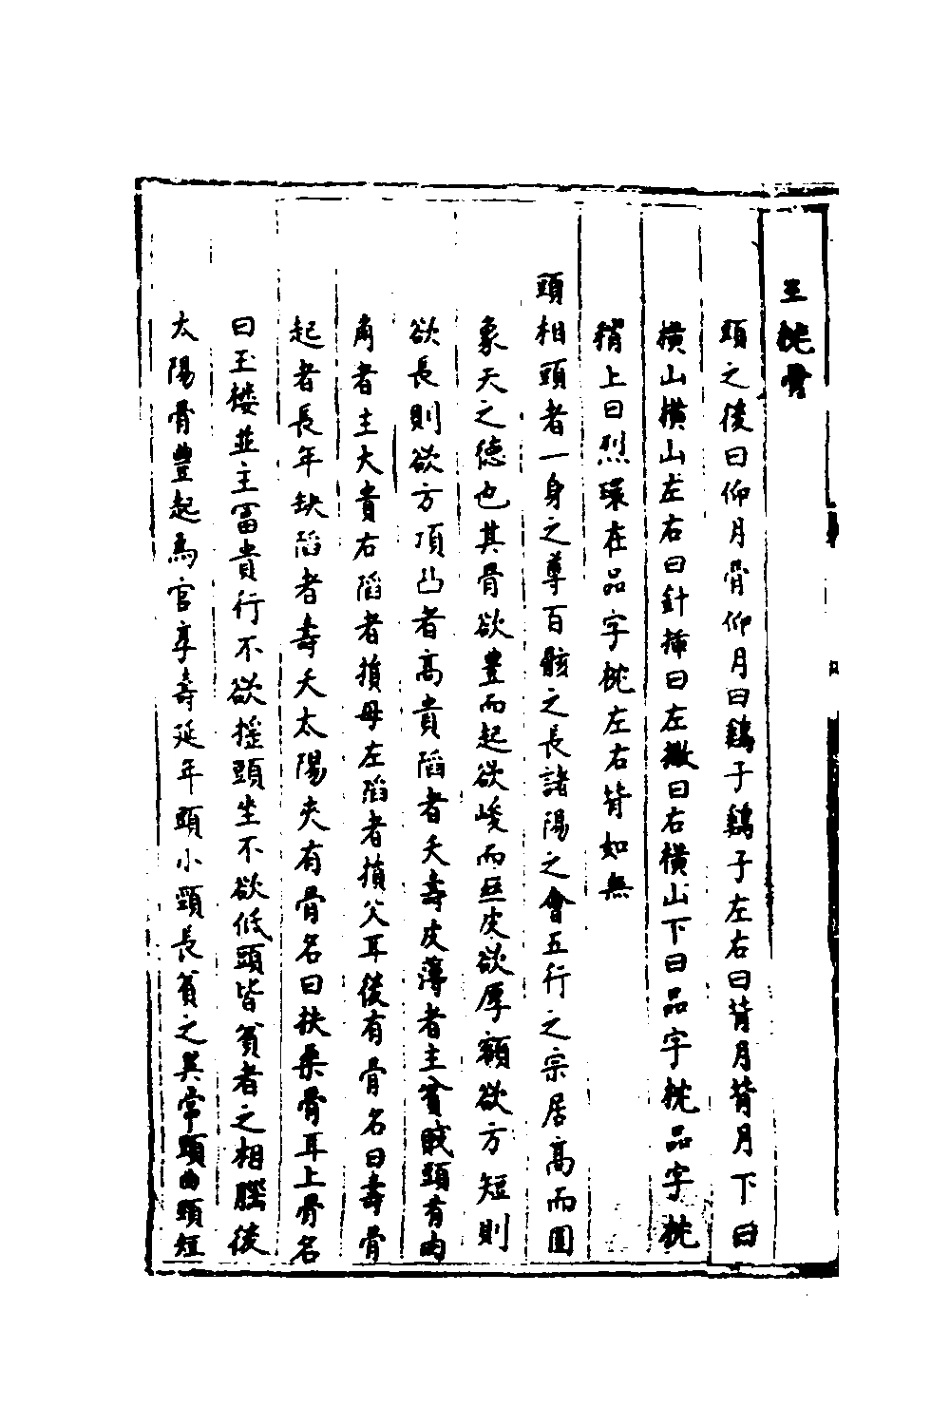 玉枕骨
頭之後曰仰月骨仰月曰鷄子鷄子左右曰背月背月下曰
橫山橫山左右曰針揷曰左撒曰右橫山下曰品字枕品字枕
稍上曰烈環在品字枕左右背如無
頭相頭者一身之尊百骸之長諸陽之會五行之宗居高而圓
象天之德也其骨欲豊而起欲峻而巨皮欲厚額欲方短則
欲長則欲方項凸者高貴滔者夭壽皮薄者主貧賎頭有肉
角者主大貴右滔者損母左滔者損父耳後有骨名曰壽骨
起者長年缺滔者壽夭太陽夾有骨名曰扶桑骨耳上骨名
曰玉楼並主冨貴行不欲揺頭坐不欲低頭皆貧者之相腦後
太陽骨豊起爲官享壽延年頭小頸長貧之異常頭曲頸短